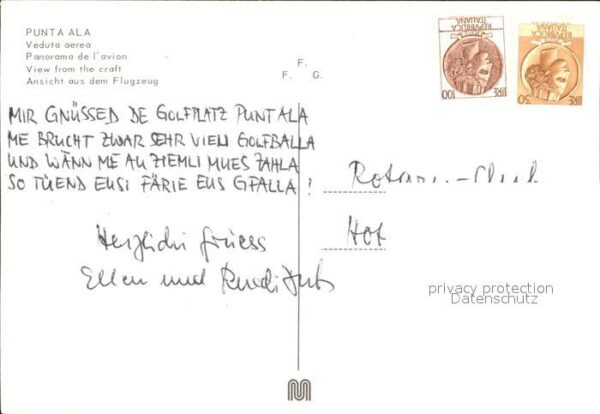 PUNTA ALA
Veduta aerea
Panorama de l'avion
View from the craft
Ansicht aus dem Flugzeug
F.
F. G.
REPVBBLICA
ITALIANA
LIRE 100
REPVBBLICA
ITALIANA
LIRE 30
MIR GNÜSSED DE GOLFPLATZ PUNTALA
ME BRUCHT ZWAR SEHR VIELI GOLFBÄLLA
UND WÄNN ME AU ZIEMLI MUES ZAHLA
SO TÜEND EUSI FÄRIE EUS GFALLA !
Herzlichi Grüess
Ellen und Ruedi
Hof
privacy protection
Datenschutz